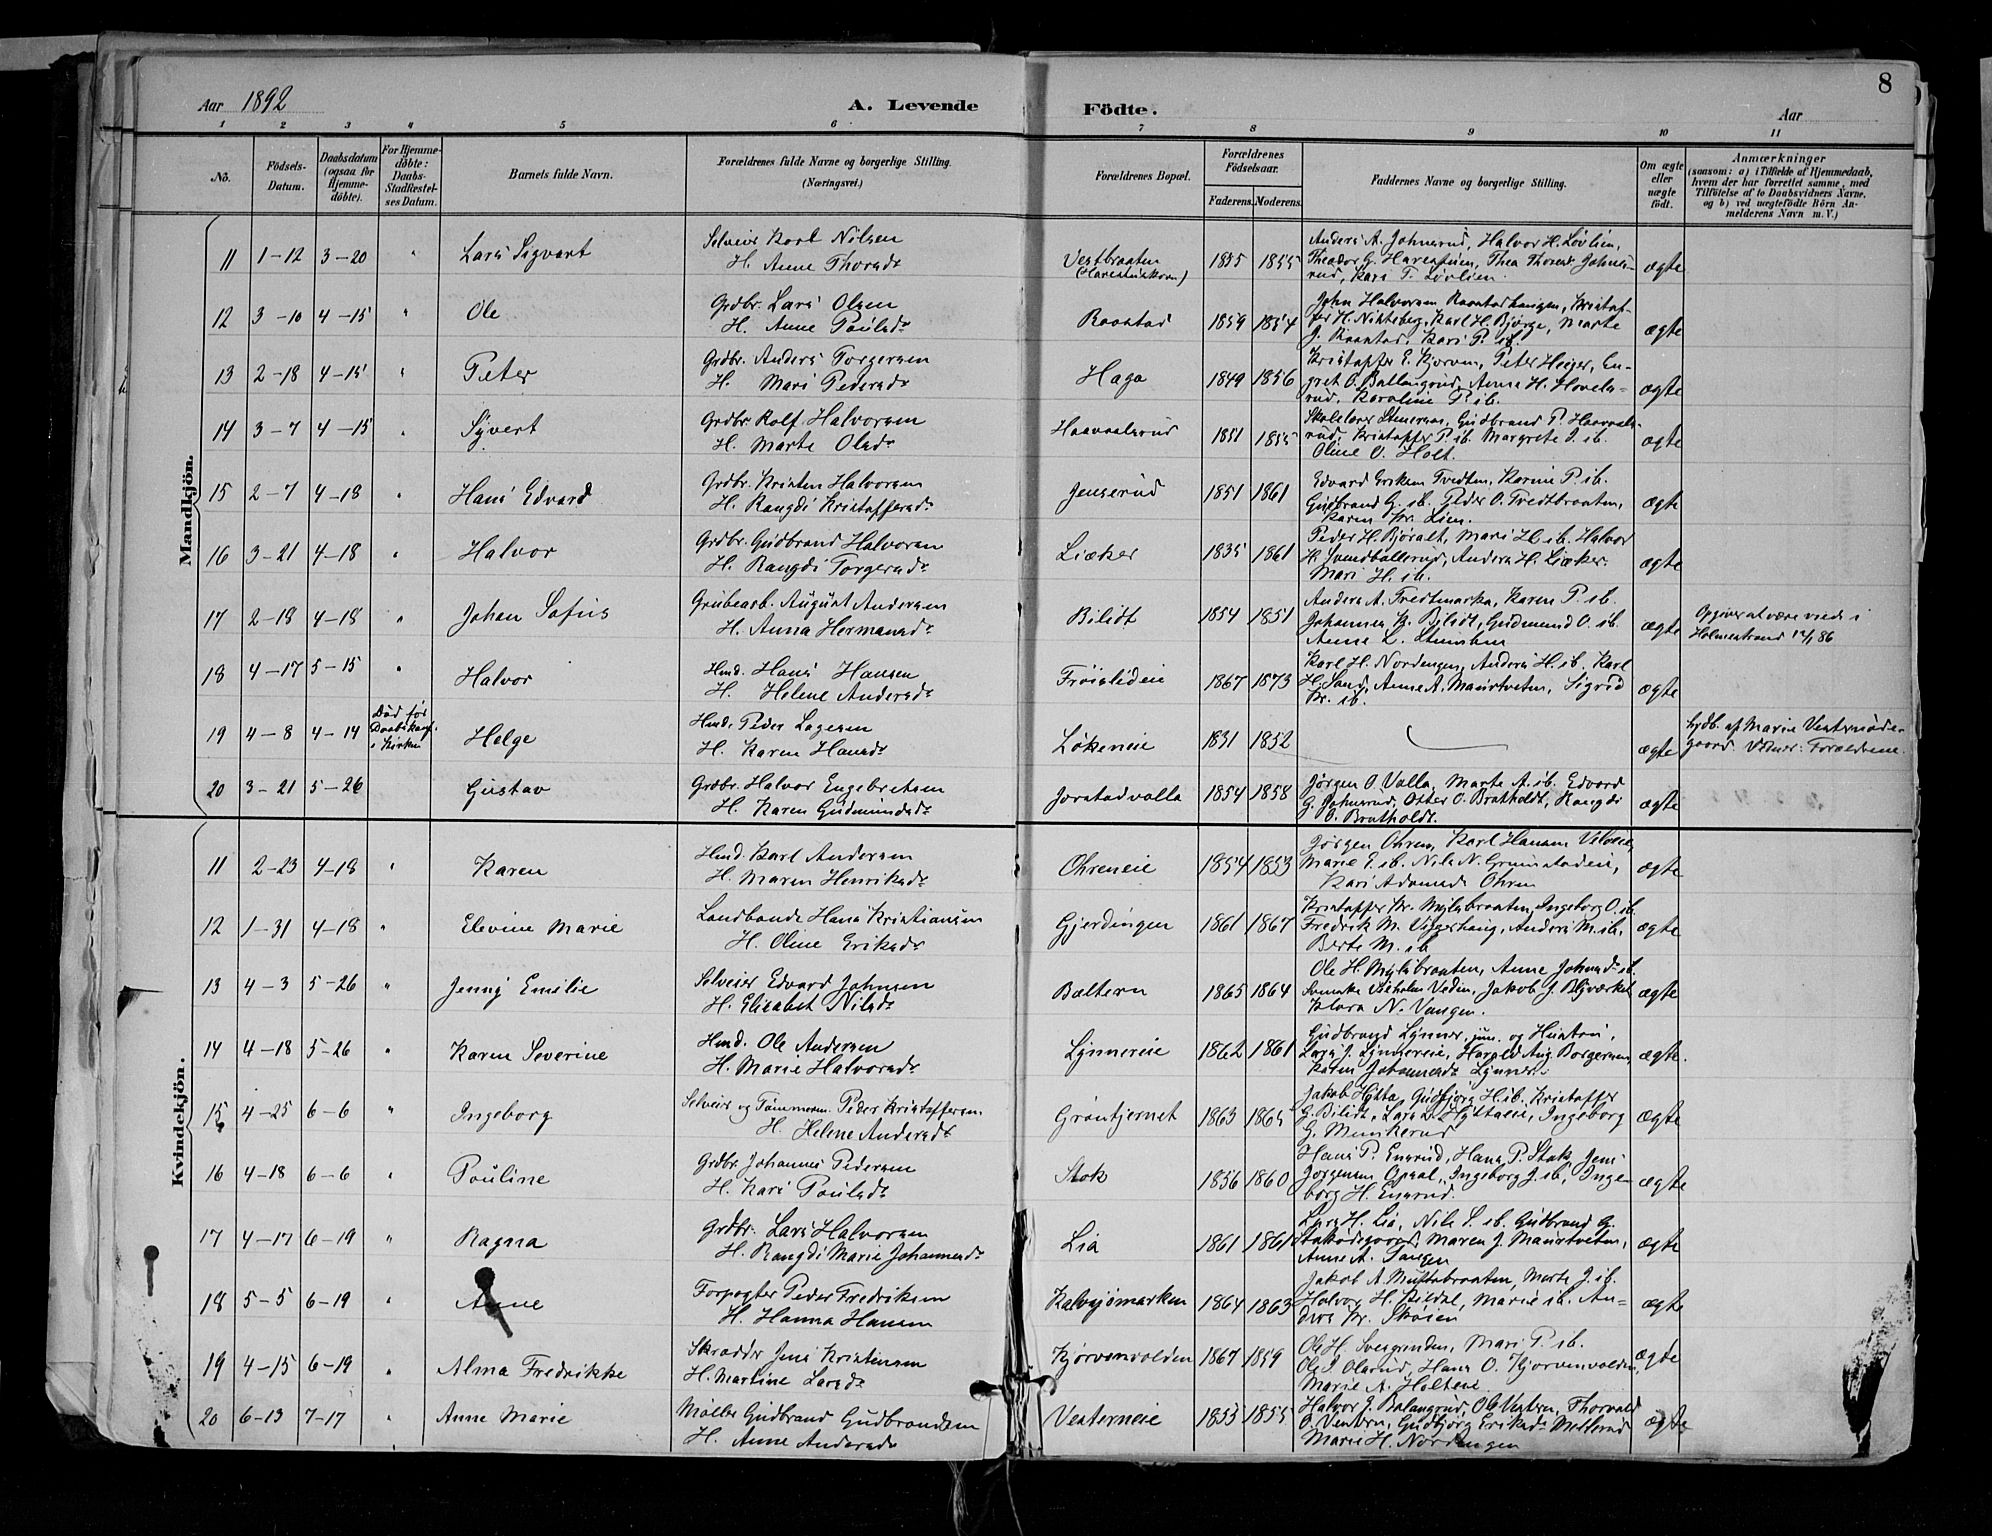 8
Aar 1892 A. Levende Födte. Aar
1 2 3 4 5 6 7 8 9 10 11
Nö. Födsels-Datum. Daabsdatum (ogsaa for Hjemmedöbte). For Hjemmedöbte: Daabs-Stadfæstelses Datum. Barnets fulde Navn. Forældrenes fulde Navne og borgerlige Stilling. (Næringsvei.) Forældrenes Bopæl. Forældrenes Födselsaar. Faderens. Moderens. Faddernes Navne og borgerlige Stilling. Om ægte eller uægte födt. Anmærkninger (saasom: a) i Tilfælde af Hjemmedaab, hvem der har forrettet samme, med Tilföielse af to Daabsvidners Navne, og b) ved uægtefödte Börn Anmelderens Navn m. V.)
Mandkjön.
11 1-12 3-20 " Lars Sigvart Selveier Karl Nilsen
H. Anne Thorsdr Vestbraaten (Harestukroken) 1855 1855 Anders A. Johnsrud, Halvor H. Løvlien,
Theodor G. Harestuen, Thea Thorsdr Johns-
rud, Kari T. Løvlien. ægte
12 3-10 4-15 " Ole Grdbr. Lars Olsen
H. Anne Paulsdr Raastad 1859 1854 John Halvorsen Raastadhaugen, Kristof-
fer H. Niktsberg, Karl H. Bjørge, Marte
J. Raastad, Kari P. ib. ægte
13 2-18 4-15 " Peter Grdbr. Anders Torgersen
H. Mari Pedersdr Haga 1849 1856 Kristoffer E. Kjorven, Peter Heger, En-
gret O. Ballangrud, Anna H. Hovels-
rud, Karoline P. ib. ægte
14 3-7 4-15 " Syvert Grdbr Rolf Halvorsen
H. Marte Olsdr Haavaalsrud 1851 1855 Skolelærer Stenersen, Gudbrand P. Haavaals-
rud, Kristoffer P. ib. Margrete J. ib.
Oline O. Holt. ægte
15 2-7 4-18 " Hans Edvard Grdbr. Kristen Halvorsen
H. Rangdi Kristoffersdr Jenserud 1851 1861 Edvard Eriksen Tvedten, Karine P. ib.
Gudbrand G. ib. Peder O. Tvedtbraaten,
Karen Kr. Lien. ægte
16 3-21 4-18 " Halvor Grdbr. Gudbrand Halvorsen
H. Rangdi Torgersdr Liæker 1835 1861 Peder H. Bjøralt, Mari H. ib. Halvor
H. Svendballerud, Anders H. Liæker.
Mari H. ib. ægte
17 2-18 4-18 " Johan Sofus Grubearb. August Andersen
H. Anna Hermansdr Bilidt 1854 1851 Anders A. Tvedtmarka, Karen P. ib.
Johannes K. Bilidt, Gudmund O. ib.
Anne L. ægte Opgiver at være viede i
Holmestrand 86
18 4-17 5-15 " Halvor Hmd. Hans Hansen
H. Helene Andersdr Frøislideie 1867 1873 Karl H. Nordengen, Anders H. ib. Karl
H. Sand, Anne A. Maurtveten, Sigrid
Kr. ib. ægte
19 4-8 4-14 Død før
Daabskast.
i Kirken Helge Hmd. Peder Larsen
H. Karen Hansdr Løkeneie 1831 1852 ægte hjdb. af Marie Vesternøde-
gaard. Vidner: Forældrene.
20 3-21 5-26 Gustav Grdbr. Halvor Engebretsen
H. Karen Gudmundsdr Jorstadvolla 1854 1858 Jørgen O. Volla, Marte A. ib. Edvard
G. Johnsrud, Otter O. Bratholdt, Rangdi
O. Bratholdt. ægte
Kvindekjön.
11 2-23 4-18 " Karen Hmd. Karl Andersen
H. Maren Henriksdr Ohreneie 1854 1853 Jørgen Ohren, Karl Hansen Velseie,
Marie E. ib. Nils N. Grinistadeie,
Kari Ohren ægte
12 1-31 4-18 " Elevine Marie Landhandl. Hans Kristiansen
H. Oline Eriksdr Gjerdingen 1861 1867 Kristoffer Kr. Myllybraaten, Ingeborg O. ib.
Fredrik M. Viggerhaug, Anders M. ib.
Berte M. ib ægte
13 4-3 5-26 " Jenny Emilie Selveier Edvard Johnsen
H. Elisabet Nilsdr Baltern 1865 1864 Ole H. Myllabraaten, Anne Johnsdr ib.
Svenske Vilhelm Vedin, Jakob J. Blyværket
Klara N. Vangen. ægte
14 4-18 5-26 " Karen Severine Hmd. Ole Andersen
H. Marie Halvorsdr Lynnereie 1862 1861 Gudbrand Lynner, jun. og Hustru,
Lars J. Lynnereie, Harald Aug. Borgersen,
Karen Johannesdr Lynner. ægte.
15 4-25 6-6 " Ingeborg Selveier og Tømmerm. Peder Kristoffersen
H. Helene Andersdr Grøntjernet 1863 1865 Jakob Hytta, Gudbjørg H. ib. Kristoffer
G. Bilidt, Lars L. Hyttaeie, Ingeborg
G. Munkerud ægte
16 4-18 6-6 " Pauline Grdbr. Johannes Pedersen
H. Kari Paulsdr Stok 1856 1860 Hans P. Engrud, Hans P. Stok, Jens
Jørgensen Opaal, Ingeborg J. ib, Inge-
borg H. Engrud. ægte
17 4-17 6-19 " Ragna Grdbr. Lars Halvorsen
H. Rangdi Marie Johannesdr Lia 1861 1861 Lars H. Lia, Nils S. ib. Gudbrand G.
Stakødegaard, Maren J. Maurtveten,
Anne A. Tangen ægte
18 5-5 6-19 " Anne Forpagter Peder Fredriksen
H. Hanna Hansen Kalvsjømarken 1864 1863 Jakob A. Muttabraaten, Marte J. ib.
Halvor H. Kildal, Marie ib. An-
ders Kr. Skøien ægte
19 4-15 6-19 " Alma Fredrikke Skrædder Jens Kristensen
H. Martine Larsdr Kjørvenvolden 1867 1859 Ole H. Svegrinden, Mari P. ib.
Ole J. Olsrud, Hans O. Kjorvenvolden,
Marie A. Holteie ægte
20 6-13 7-17 " Anne Marie Møller Gudbrand Gudbrandsen
H. Anne Andersdr Vesterneie 1853 1855 Halvor J. Balangrud, Ole Vestern, Thorvald
O. Vestern, Gudbjørg Eriksdr Mellerud
Marie H. Nordengen ægte